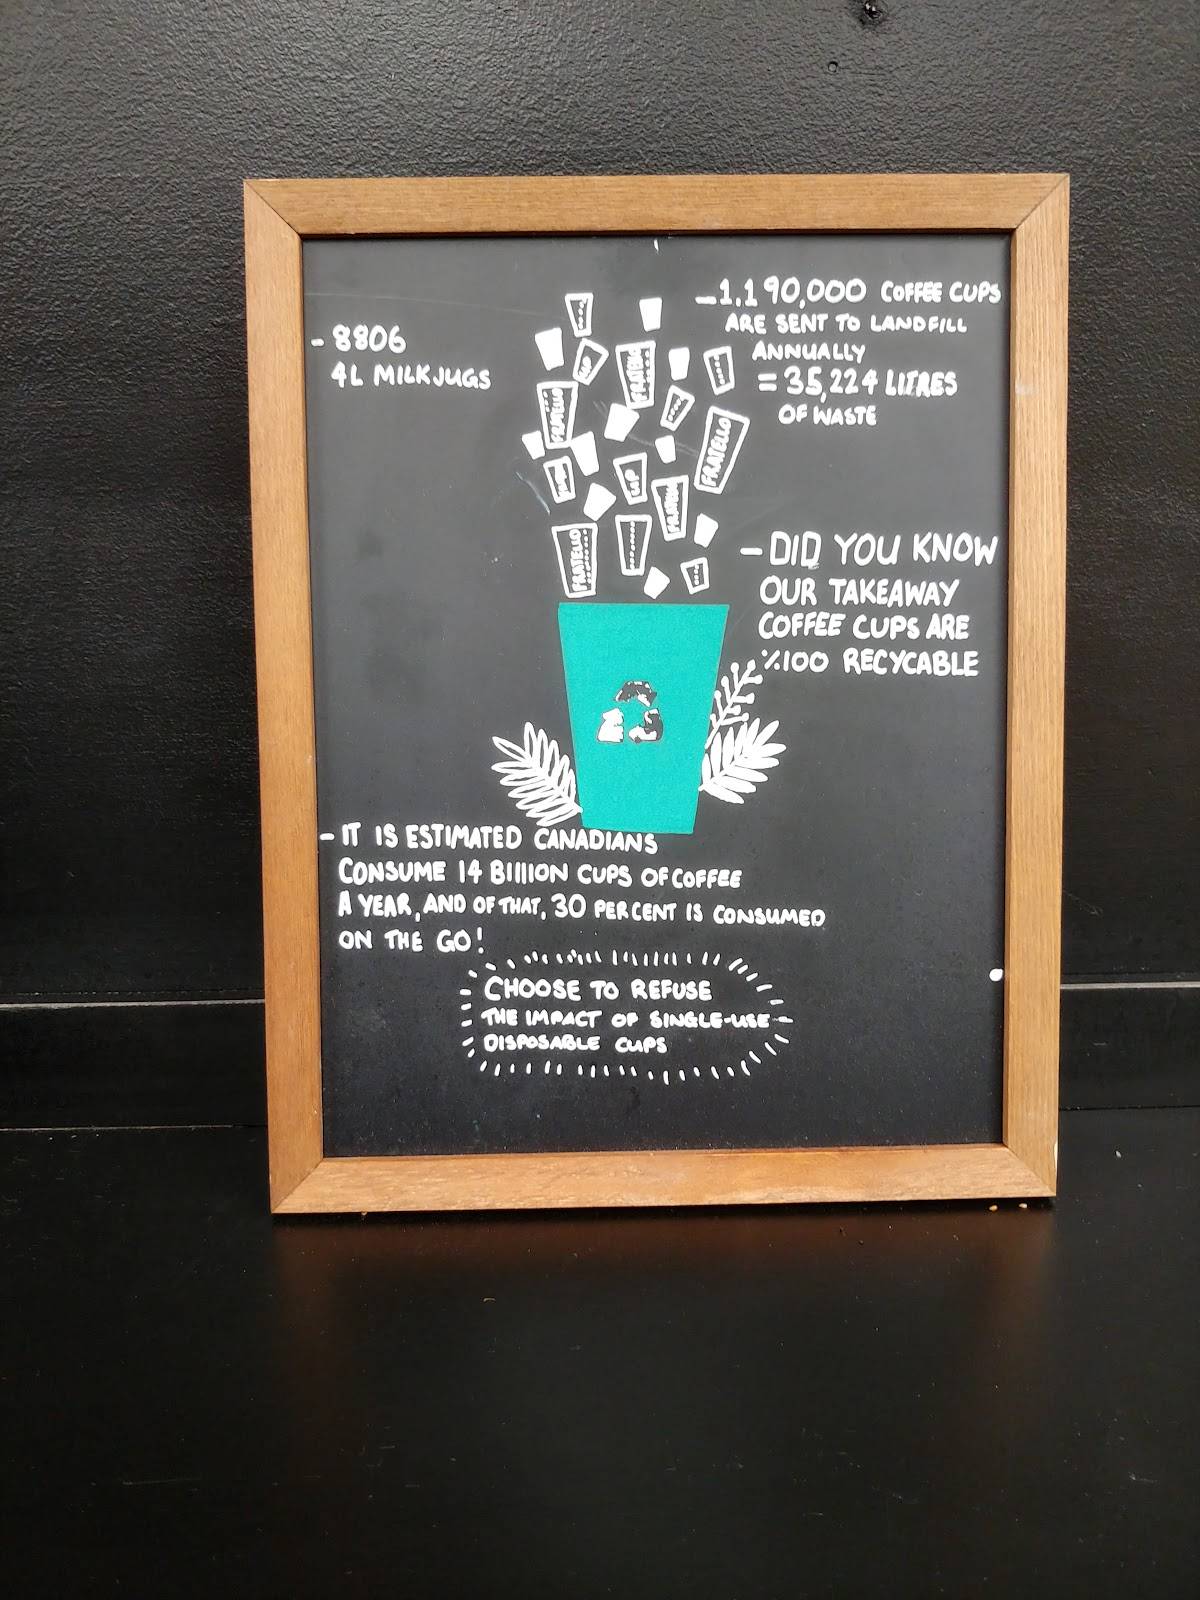 - 8806
4L MILK JUGS
- 1,190,000 COFFEE CUPS
ARE SENT TO LANDFILL
ANNUALLY
= 35,224 LITRES
OF WASTE
FRATELLO
FRATELLO
FRATELLO
FRATELLO
- DID YOU KNOW
OUR TAKEAWAY
COFFEE CUPS ARE
%100 RECYCABLE
- IT IS ESTIMATED CANADIANS
CONSUME 14 BILLION CUPS OF COFFEE
A YEAR, AND OF THAT, 30 PERCENT IS CONSUMED
ON THE GO!
CHOOSE TO REFUSE
THE IMPACT OF SINGLE-USE
DISPOSABLE CUPS